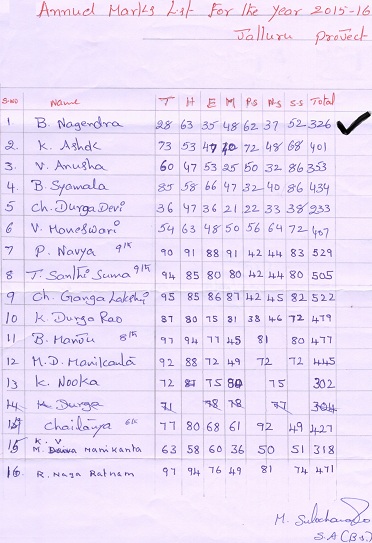 Annual Marks List For the Year 2015-16
Jalluru project
S.NO Name T H E M P.S N.S S.S Total
1 B. Nagendra 28 63 35 48 62 37 52 326
2. K. Ashok 73 53 47 70 72 48 68 401
3. V. Anusha 60 47 53 25 50 32 86 353
4. B. Syamala 85 58 66 47 32 40 86 434
5 Ch. Durga Devi 36 47 36 21 22 33 38 233
6 V. Maneswari 54 63 48 50 56 64 72 407
7 P. Navya 90 91 88 91 42 44 83 529
8 T. Santhi Suma 94 85 80 80 42 44 80 505
9 Ch. Ganga Lakshmi 95 85 86 87 42 45 82 522
10 K. Durga Rao 87 80 75 81 38 46 72 479
11 B. 97 94 77 45 81 80 477
12 M.D. Manikanta 92 88 72 49 72 72 445
13 K. Nooka 72 87 75 75 302
14 K. Durga 71 78 78 77 304
Chaitanya 77 80 68 61 92 49 427
15 K. V
M. Manikanta 63 58 60 36 50 51 318
16. R. Naga Ratnam 97 94 76 49 81 74 471
M.
S.A